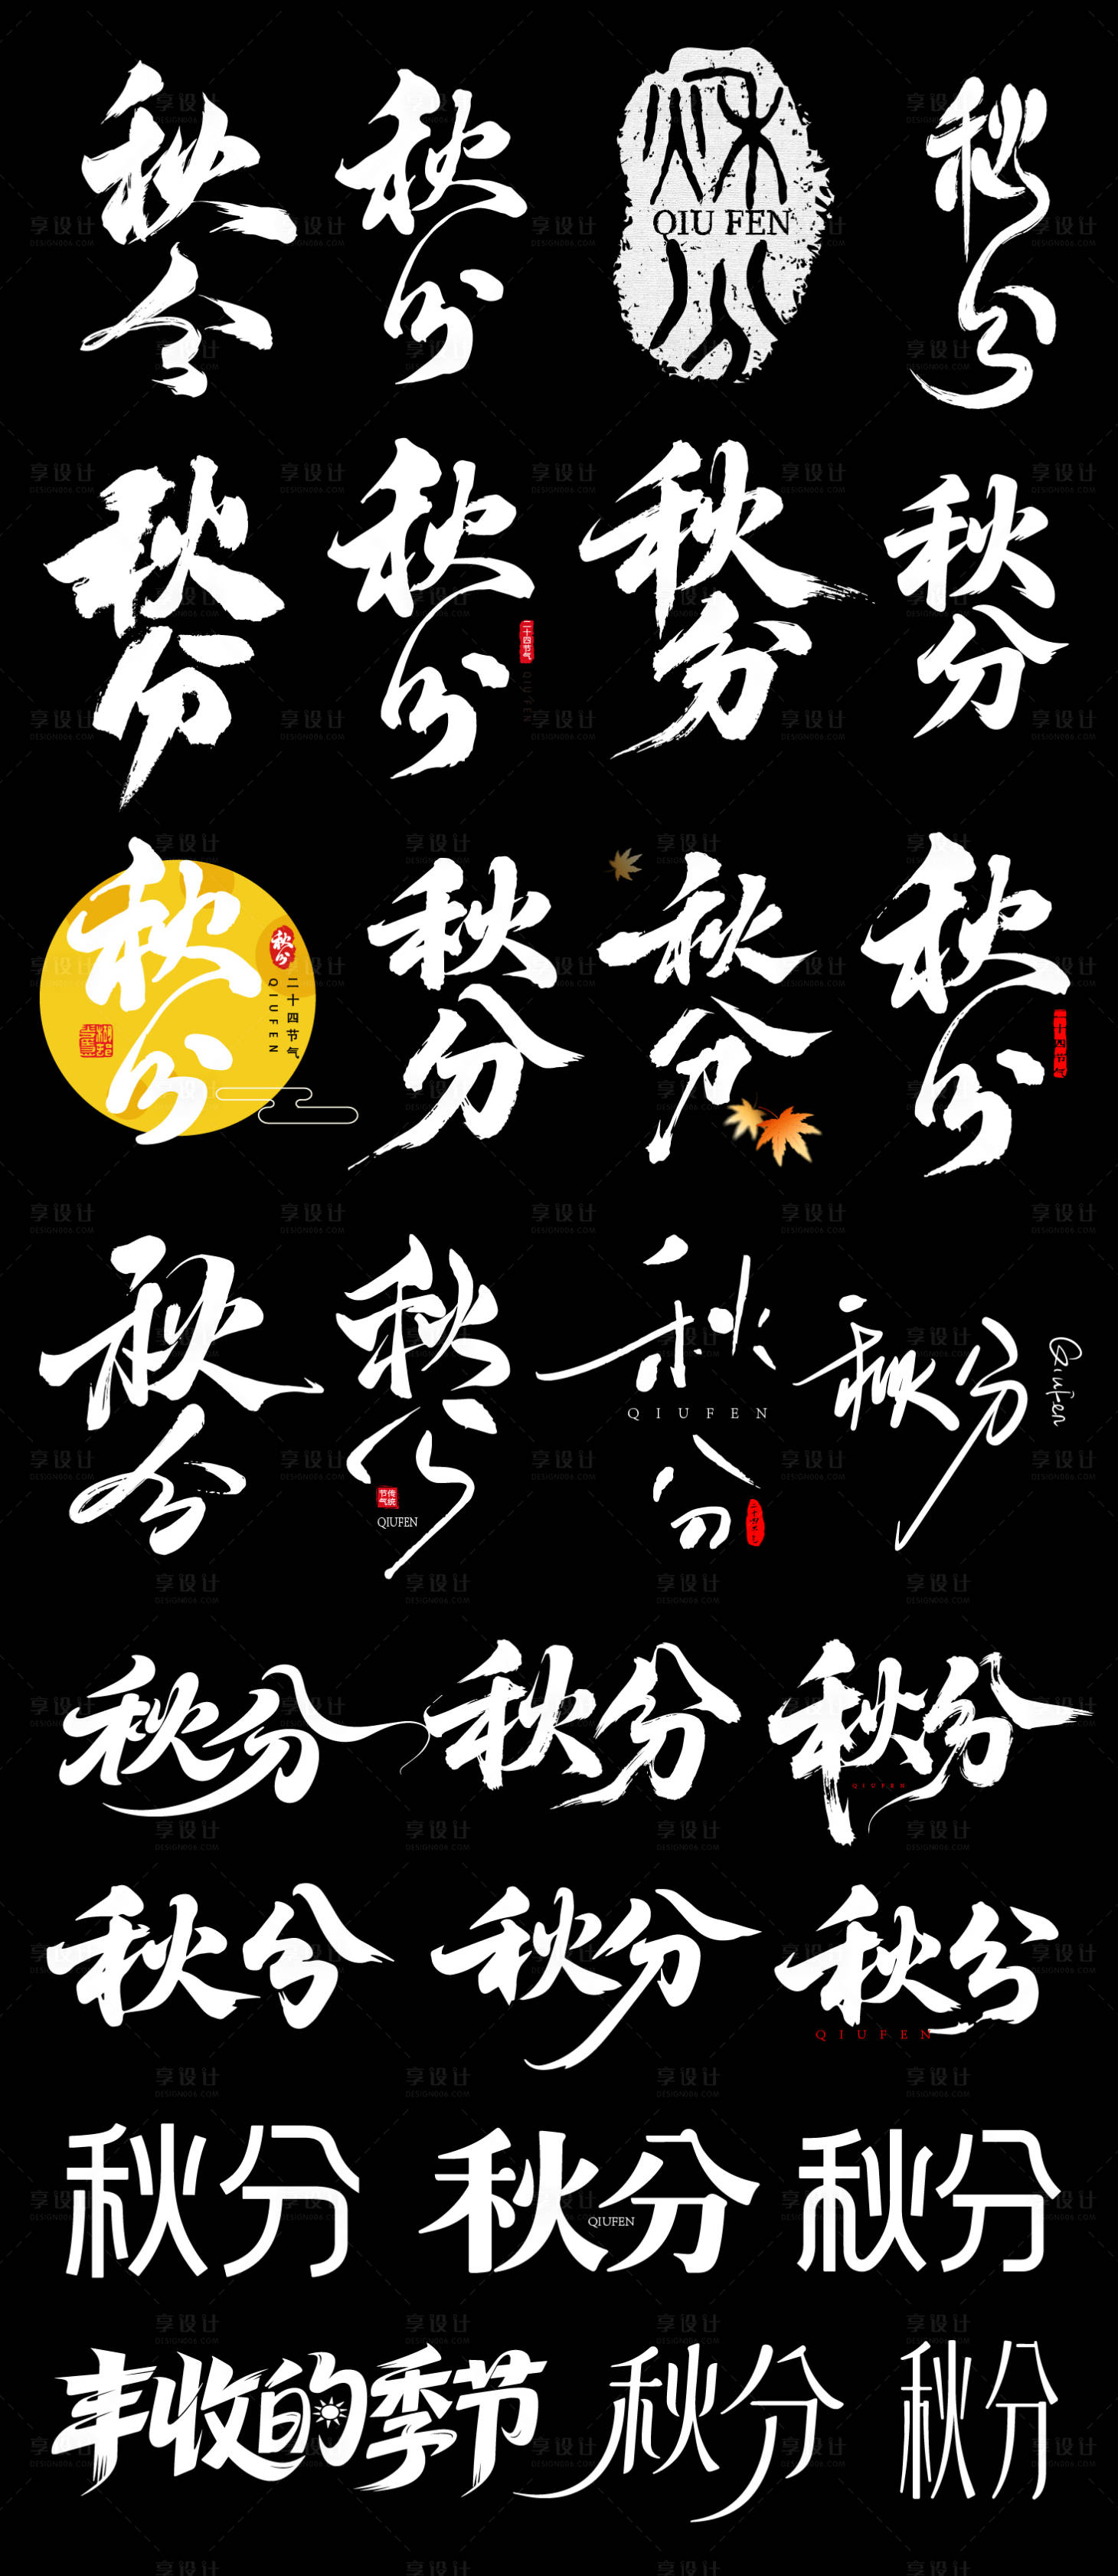 秋分
秋分
秋分
QIU FEN
秋分
秋分
秋分
二十四节气
QIUFEN
秋分
秋分
秋分
秋分
二十四节气
QIUFEN
秋分
秋分
秋分
二十四节气
秋分
秋分
传统节气
QIUFEN
秋分
QIUFEN
秋分
Qiufen
秋分
秋分
秋分
QIUFEN
秋分
秋分
秋分
QIUFEN
秋分
秋分
QIUFEN
秋分
丰收的季节
秋分
秋分
享设计
DESIGN006.COM